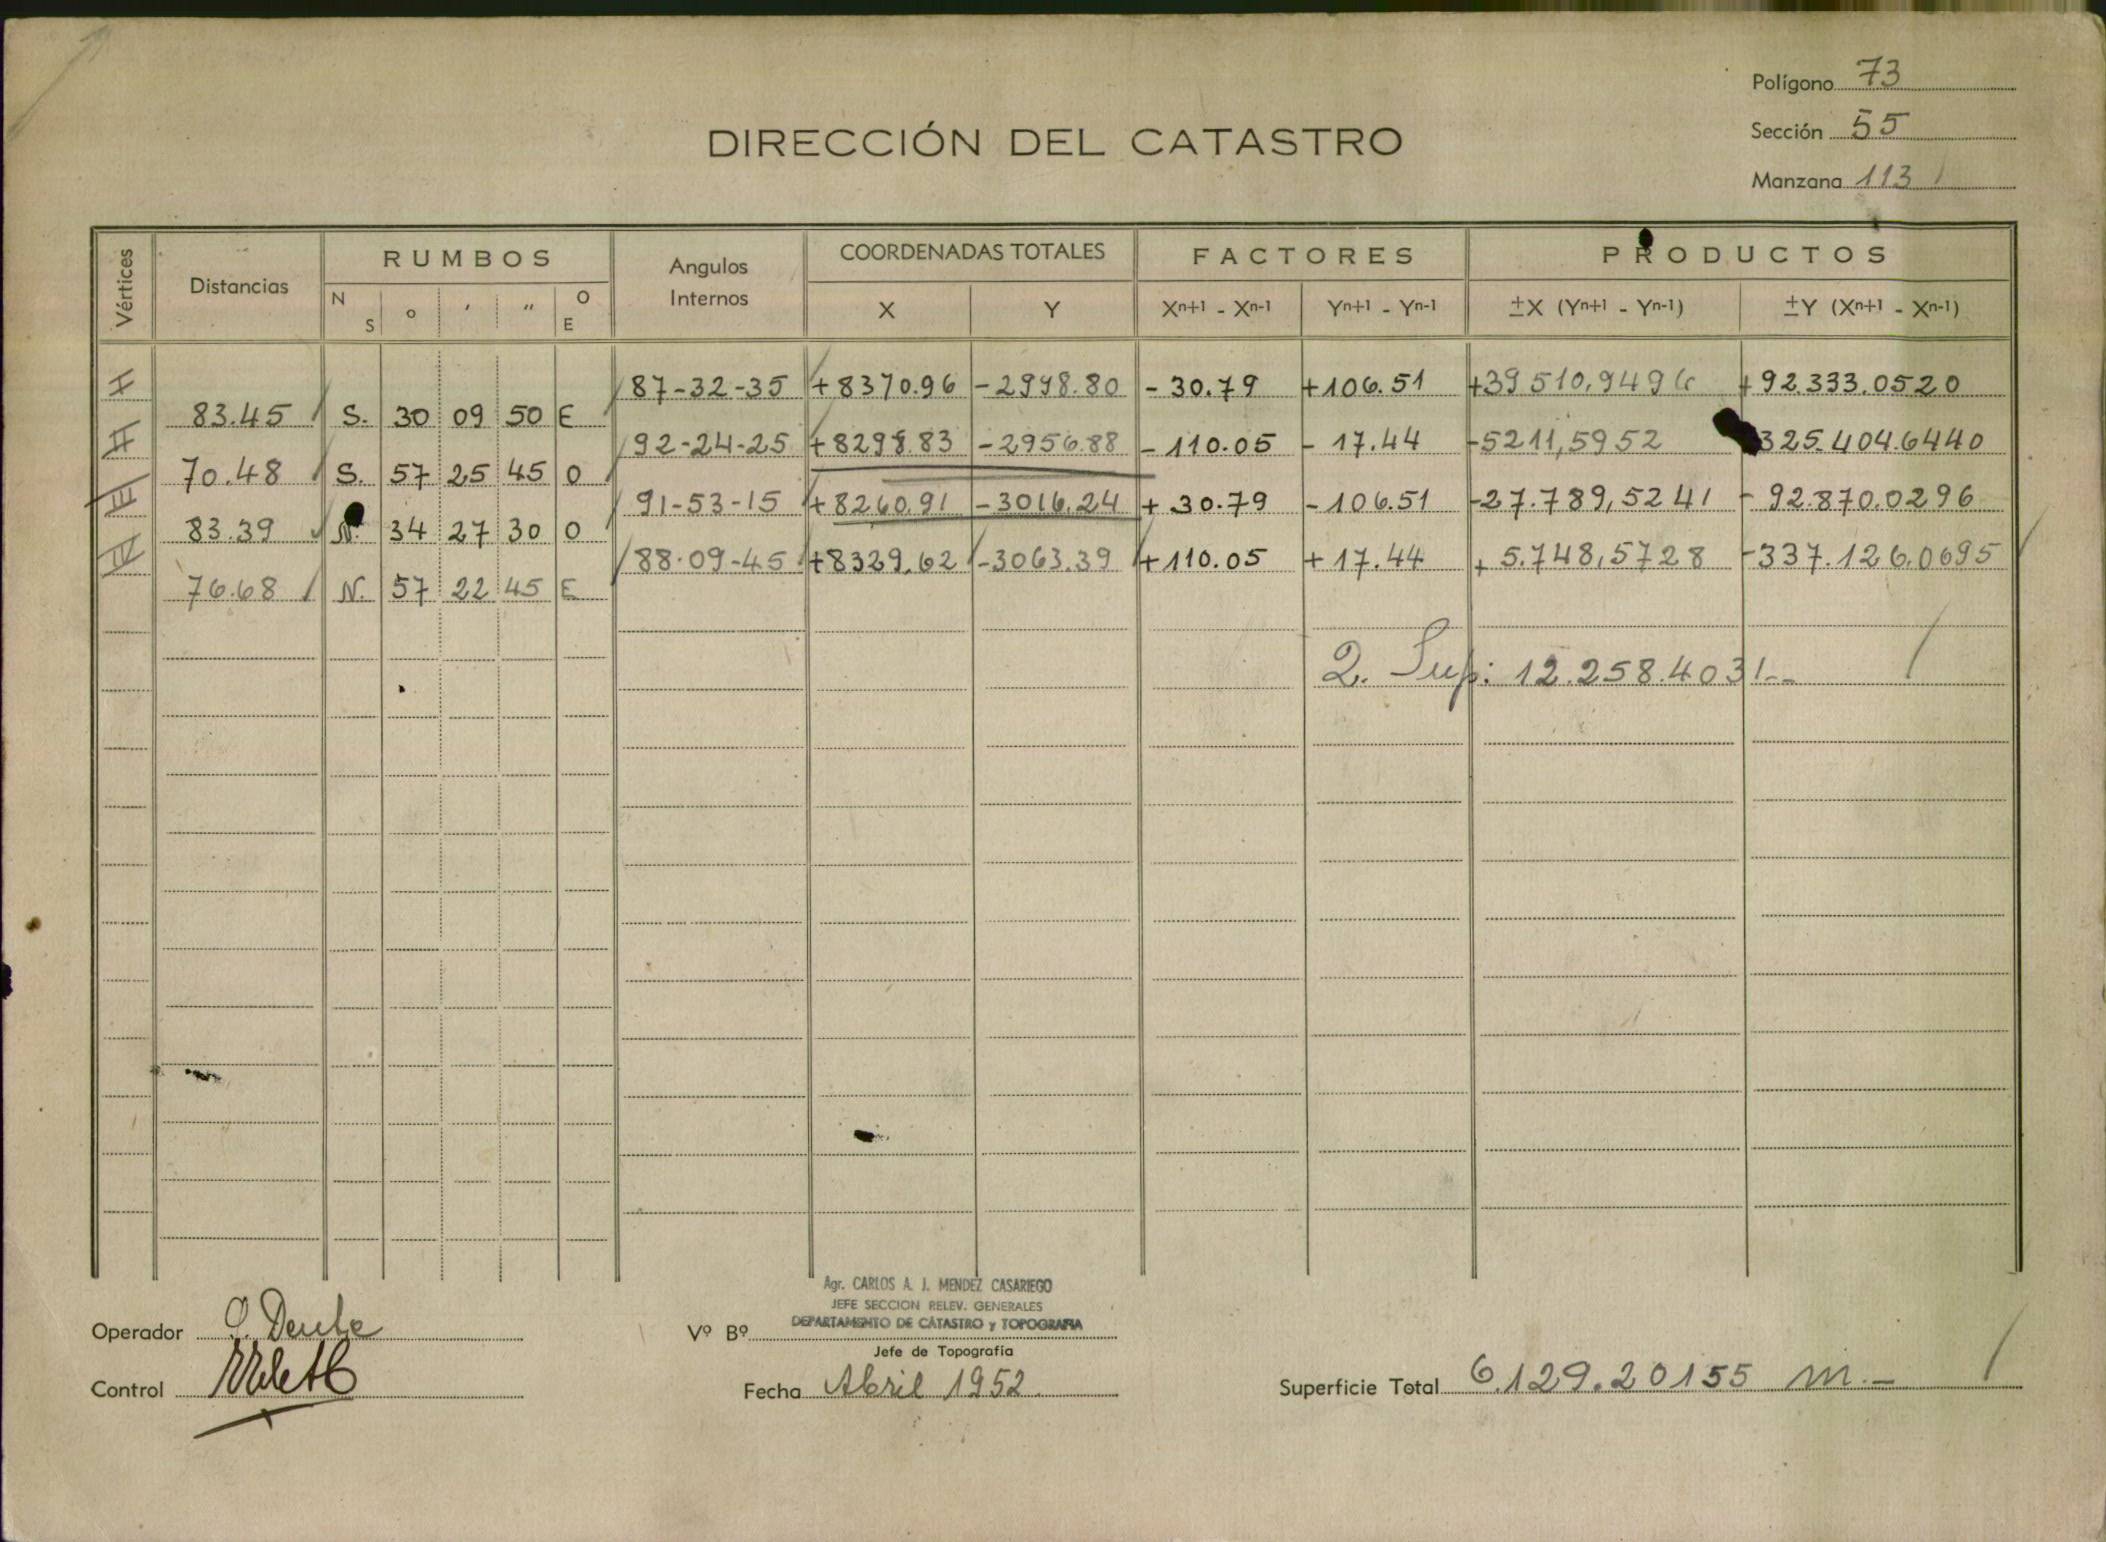 Polígono 73
Sección 55
Manzana 113
DIRECCIÓN DEL CATASTRO
Vértices Distancias RUMBOS Angulos Internos COORDENADAS TOTALES FACTORES PRODUCTOS
N S o ' " O E X Y Xn+1 - Xn-1 Yn+1 - Yn-1 ±X (Yn+1 - Yn-1) ±Y (Xn+1 - Xn-1)
I 87-32-35 +8370.96 -2998.80 -30.79 +106.51 +39510,9496 +92.333.0520
83.45 S. 30 09 50 E
II 92-24-25 +8298.83 -2956.88 -110.05 -17.44 -5211,5952 325.404.6440
70.48 S. 57 25 45 O
III 91-53-15 +8260.91 -3016.24 +30.79 -106.51 -27.789,5241 -92.870.0296
83.39 N. 34 27 30 O
IV 88-09-45 +8329.62 -3063.39 +110.05 +17.44 +5.748,5728 -337.126.0695
76.68 N. 57 22 45 E
2. Sup: 12.258.4031--
Agr. CARLOS A. J. MENDEZ CASARIEGO
JEFE SECCION RELEV. GENERALES
DEPARTAMENTO DE CATASTRO y TOPOGRAFIA
Operador
Vº Bº
Jefe de Topografía
Control
Fecha Abril 1952
Superficie Total 6.129.20155 m.-